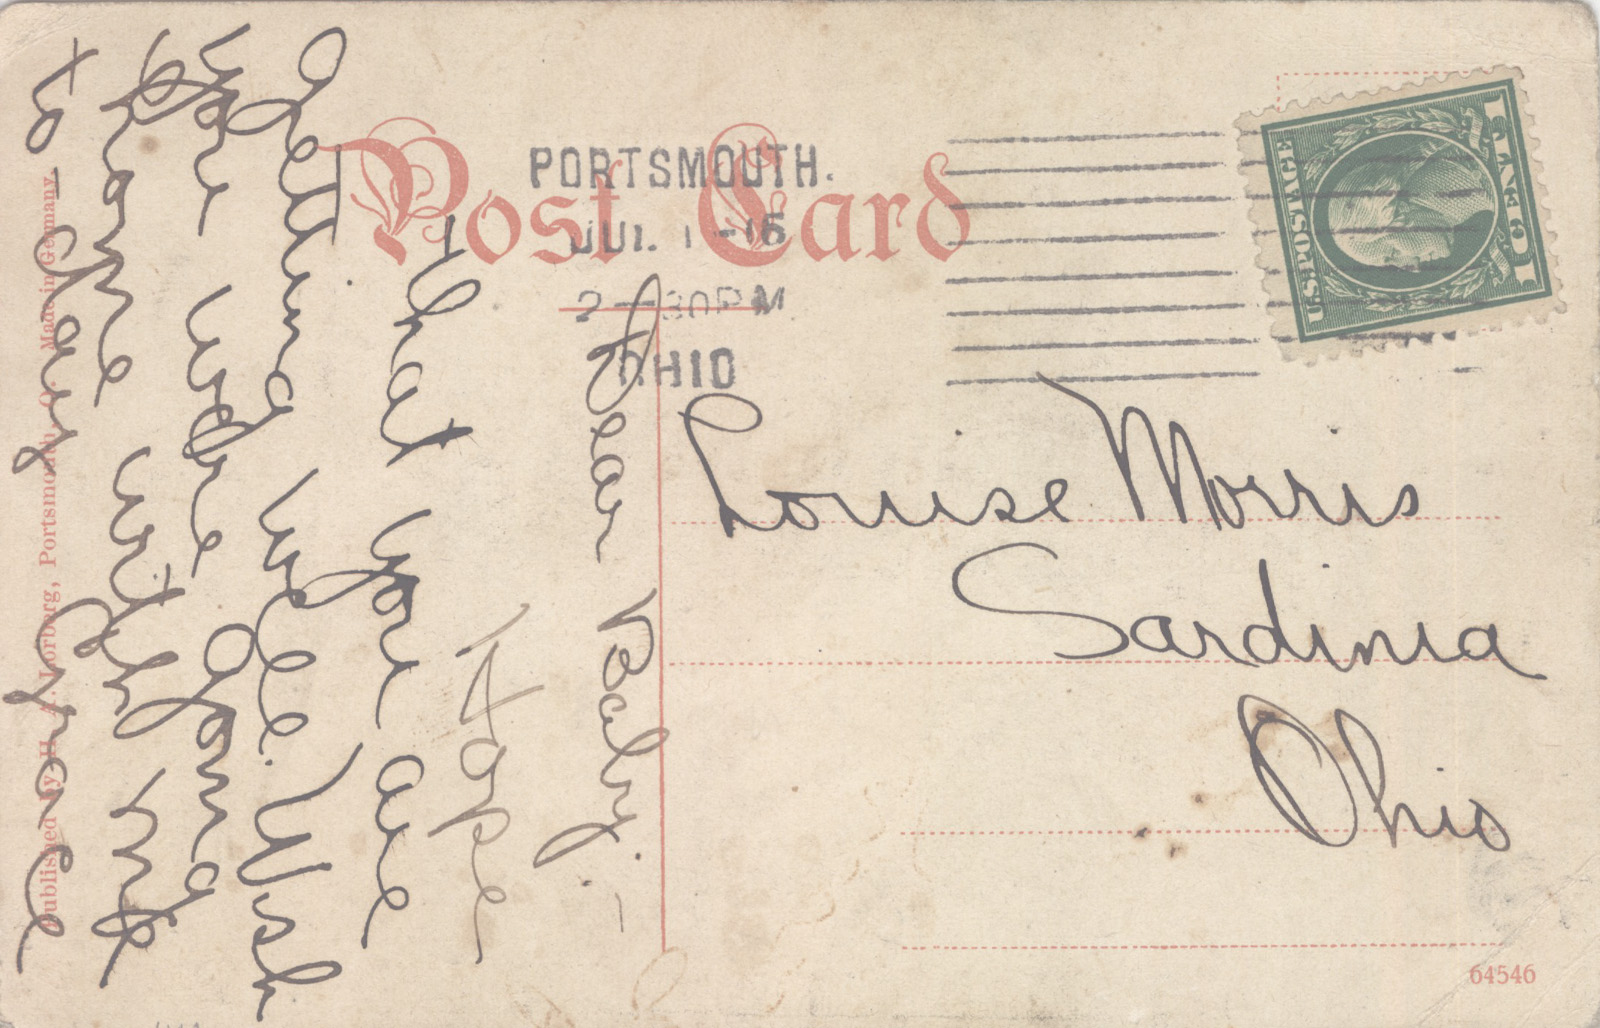 Post Card
PORTSMOUTH.
JUL 1 -16
2 - 30 PM
OHIO
U.S. POSTAGE
1 CENT 1
Louise Morris
Sardinia
Ohio
Dear Baby:-
Hope
that you are
getting well. Wish
you were going
home with me
to-day
64546
Published by H. A. Lorberg, Portsmouth, O. Made in Germany.